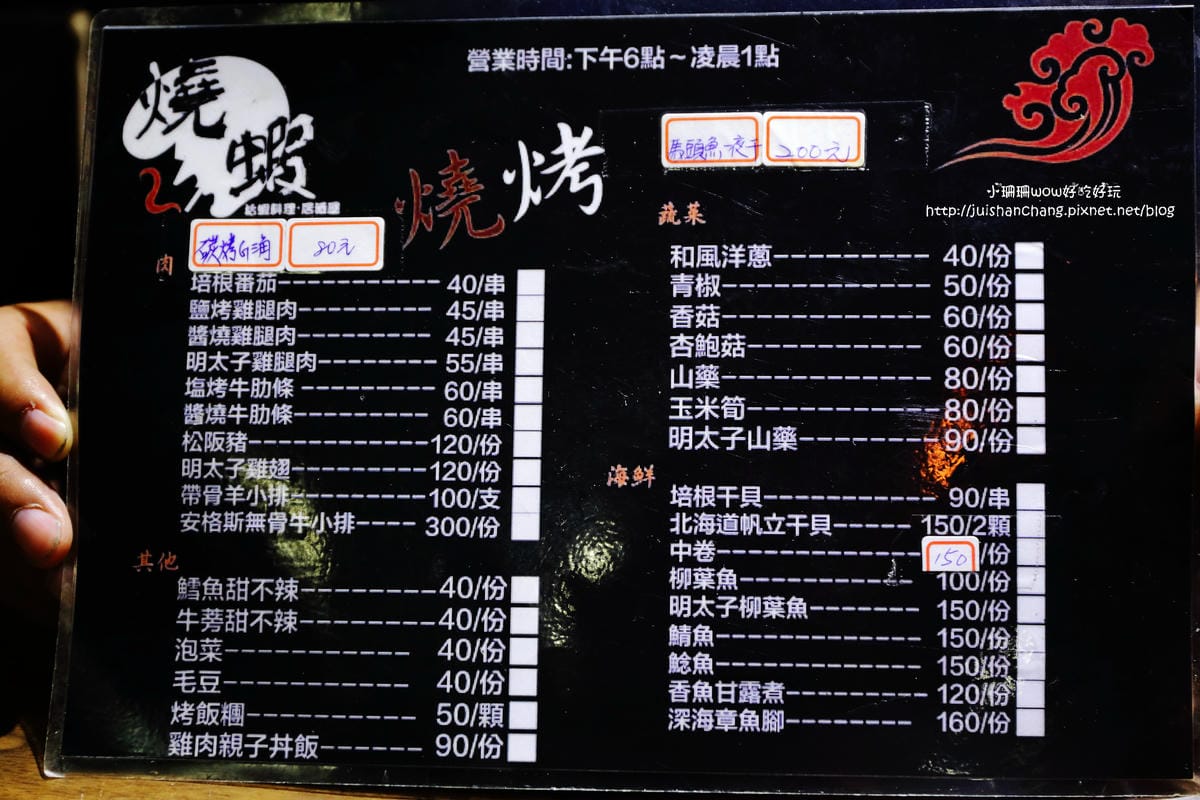 營業時間:下午6點~凌晨1點
燒
蝦
燒烤
馬頭魚一夜干 200元
小珊珊wow好吃好玩
http://juishanchang.pixnet.net/blog
80元
肉
培根番茄----------- 40/串
鹽烤雞腿肉--------- 45/串
醬燒雞腿肉--------- 45/串
明太子雞腿肉-------- 55/串
塩烤牛肋條--------- 60/串
醬燒牛肋條--------- 60/串
松阪豬------------120/份
明太子雞翅---------120/份
帶骨羊小排---------100/支
安格斯無骨牛小排---- 300/份
其他
鱈魚甜不辣---------40/份
牛蒡甜不辣---------40/份
泡菜----------- 40/份
毛豆----------- 40/份
烤飯糰---------- 50/顆
雞肉親子丼飯------- 90/份
蔬菜
和風洋蔥--------- 40/份
青椒------------ 50/份
香菇------------ 60/份
杏鮑菇---------- 60/份
山藥------------ 80/份
玉米筍---------- 80/份
明太子山藥--------90/份
海鮮
培根干貝----------- 90/串
北海道帆立干貝----- 150/2顆
中卷------------- 150/份
柳葉魚----------- 100/份
明太子柳葉魚------- 150/份
鯖魚------------ 150/份
鯰魚------------ 150/份
香魚甘露煮--------- 120/份
深海章魚腳-------- 160/份